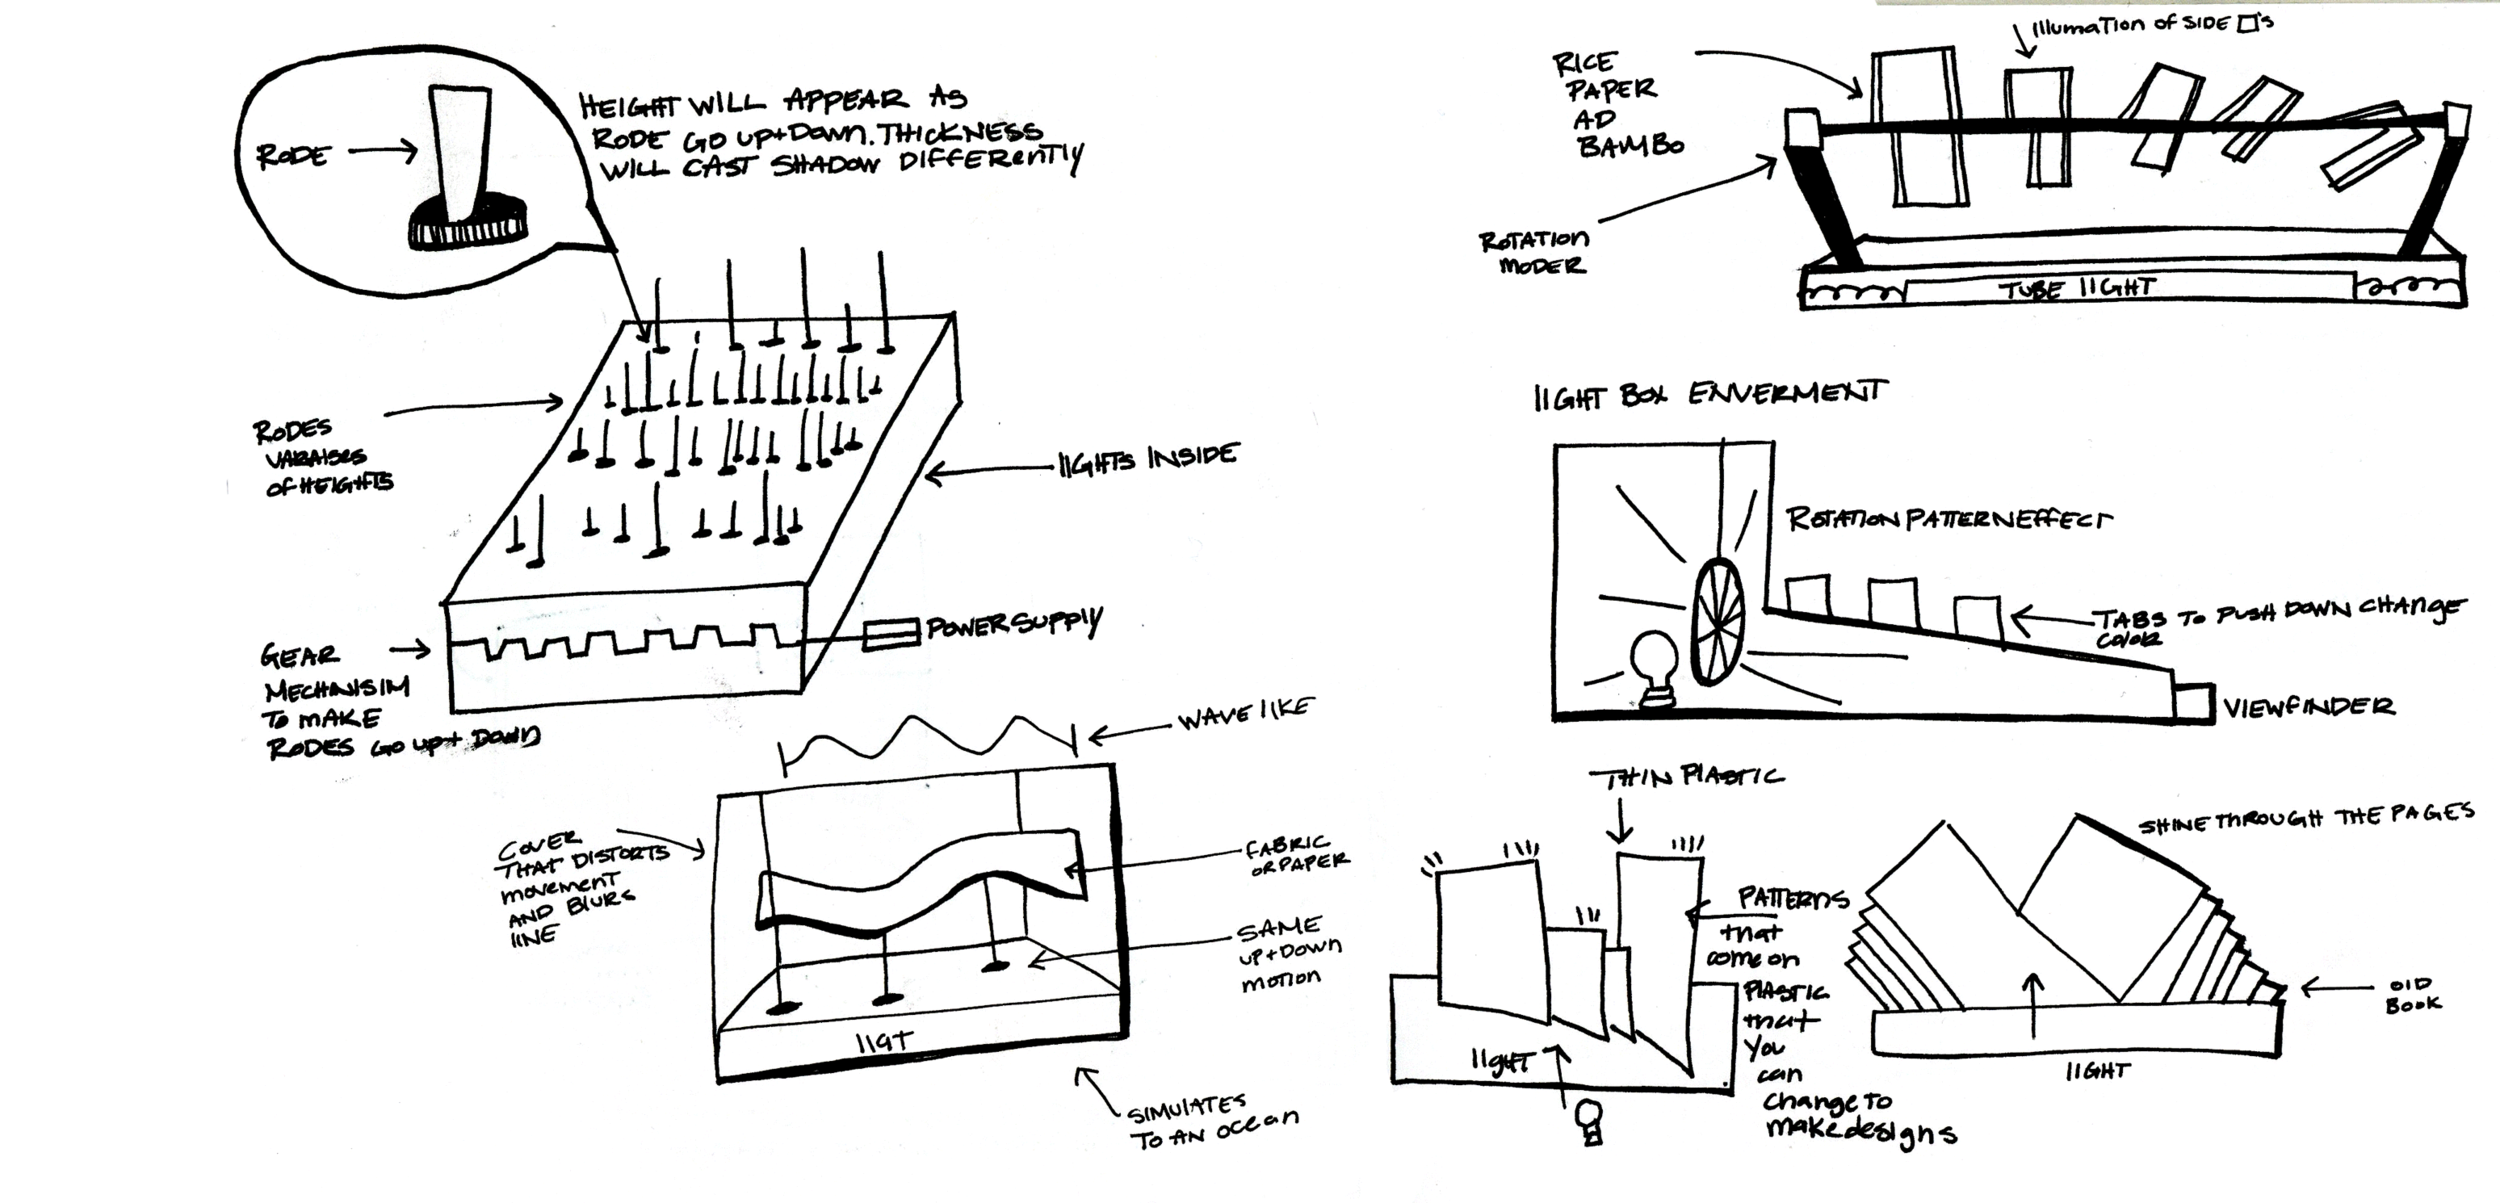 RODE
HEIGHT WILL APPEAR AS
RODE GO UP+DOWN. THICKNESS
WILL CAST SHADOW DIFFERENTLY
RODES
VARAISES
OF HEIGHTS
LIGHTS INSIDE
POWER SUPPLY
GEAR
MECHNISIM
TO MAKE
RODES GO UP+ DOWN
WAVE LIKE
COVER
THAT DISTORTS
MOVEMENT
AND BLURS
LINE
FABRIC
OR PAPER
SAME
UP+DOWN
MOTION
LIGT
SIMULATES
TO AN OCEAN
ILLUMATION OF SIDE □'s
RICE
PAPER
AD
BAMBO
ROTATION
MODER
TUBE LIGHT
LIGHT BOX ENVERMENT
ROTATION PATTERN EFFECT
TABS TO PUSH DOWN CHANGE
COLOR
VIEWFINDER
THIN PLASTIC
PATTERNS
that
come on
PLASTIC
that
You
can
change to
make designs
light
SHINE THROUGH THE PAGES
OLD
BOOK
LIGHT